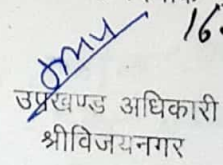 16
उपखण्ड अधिकारी
श्रीविजयनगर